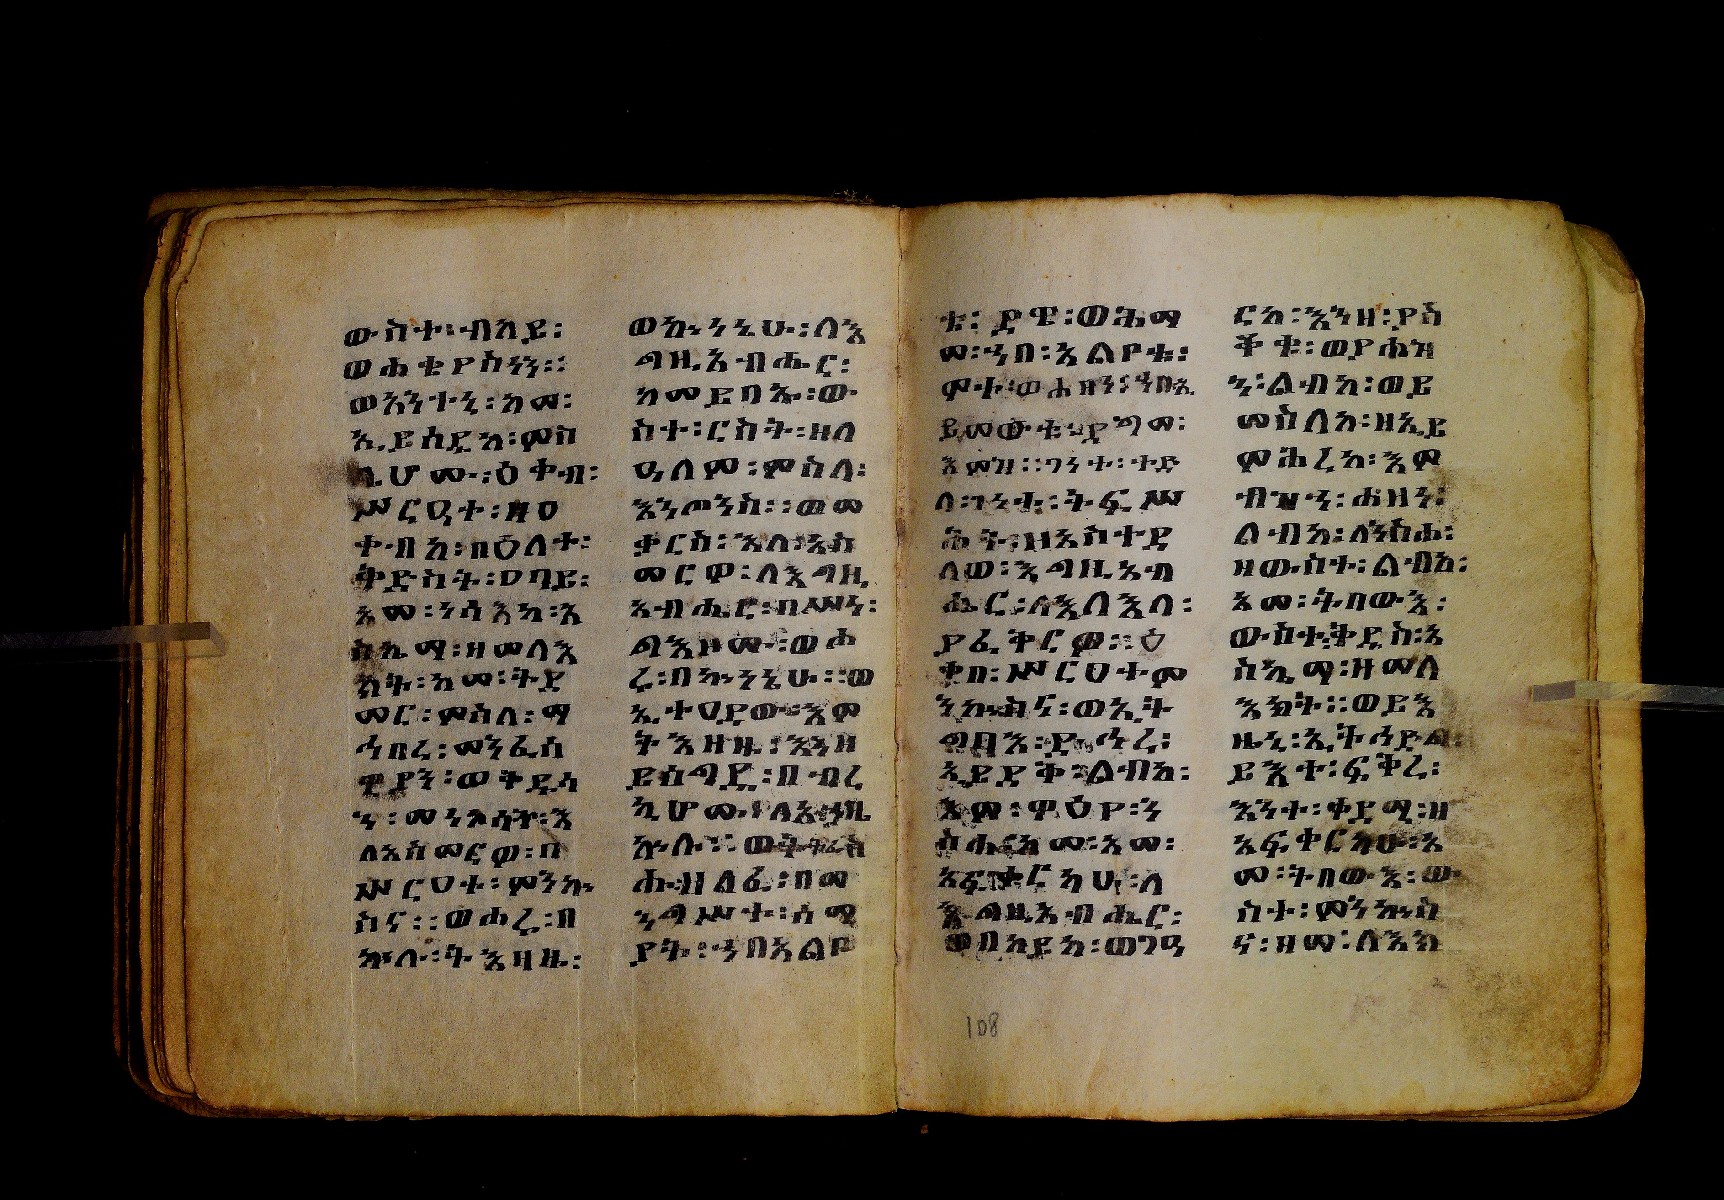 ውስተ፡ብእይ፡
ወሐቂየስንን፡፡
ወእንተኒ፡ከመ፡
ኢይሰደከ፡ምስ
ሌሆሙ፡ዕቀብ፡
ሥርዓተ፡ዘዐ
ቀብከ፡በዕለተ፡
ቅድስት፡ዐባይ፡
እመ፡ነሳእከ፡እ
ስኪማ፡ዘመለእ
ክት፡ከመ፡ትደ
መር፡ምስለ፡ማ
ኅበረ፡መንፈስ
ዊያን፡ወቅዱሳ
ን፡መነኮሳት፡እ
ለአስመርዎ፡በ
ሥርዐተ፡ምንኩ
ስና፡፡ወሐረ፡በ
ኵሉ፡ትእዛዙ፡
ወኵነኔሁ፡ለእ
ግዚአብሔር፡
ከመይባኡ፡ው
ስተ፡ርስት፡ዘለ
ዓለም፡ምስለ፡
እንጦንስ፡፡ወመ
ቃርስ፡እለ፡አስ
መርዎ፡ለእግዚ
አብሔር፡በሥነ፡
ግእዞሙ፡ወሐ
ረ፡በኵነኔሁ፡፡ወ
ኢተዐደው፡እም
ትእዛዙ፡እንዘ
ይሰግዱ፡በብረ
ኪሆሙ፡ለእግዚ
ኵሉ፡፡ወትትፌሥ
ሑ፡ዘለፈ፡በመ
ንግሥተ፡ሰማ
ያት፡፡ንበአልየ
ቱ፡ይ፬፡ወሕማ
መ፡ንበ፡አልየቱ፡
ሞት፡ወሐዘን፡ንበአ
ይመውቱ፡ደግመ፡
እምዝ፡፡ገነተ፡ተድ
ላ፡ገነት፡ትፍሥ
ሕት፡ዘአስተዳ
ለወ፡እግዚአብ
ሔር፡ለእለእለ፡
ያፈቅርዎ፡፡ዕ
ቀበ፡ሥርዐተም
ንኵስና፡ወኢት
ግባእ፡ድኅረ፡
ኢይደቅ፡ልብከ፡
እም፡ዋዕየ፡ን
ስሐርከመ፡እመ፡
አፍቀርካሁ፡ለ
እግዚአብሔር፡
ወበአይከ፡ወገዳ
ርከ፡እንዘ፡ያስ
ቆቱ፡ወያሐዝ
ን፡ልብከ፡ወይ
መስለከ፡ዘኢይ
ምሕረከ፡እም
ብዝኅ፡ሐዘን፡
ልብከ፡ለንስሐ፡
ዘውስተ፡ልብከ፡
እመ፡ትበውእ፡
ውስተ፡ቅዱስ፡አ
ስኬማ፡ዘመለ
እክት፡፡ወይእ
ዜኒ፡ኢትኅድግ፡
ይእተ፡ፍቅረ፡
እንተ፡ቀዳሚ፡ዘ
አፍቀርካሁ፡እ
መ፡ትበውእ፡ው
ስተ፡ምንኵስ
ና፡ዘመ፡ለአክ
108